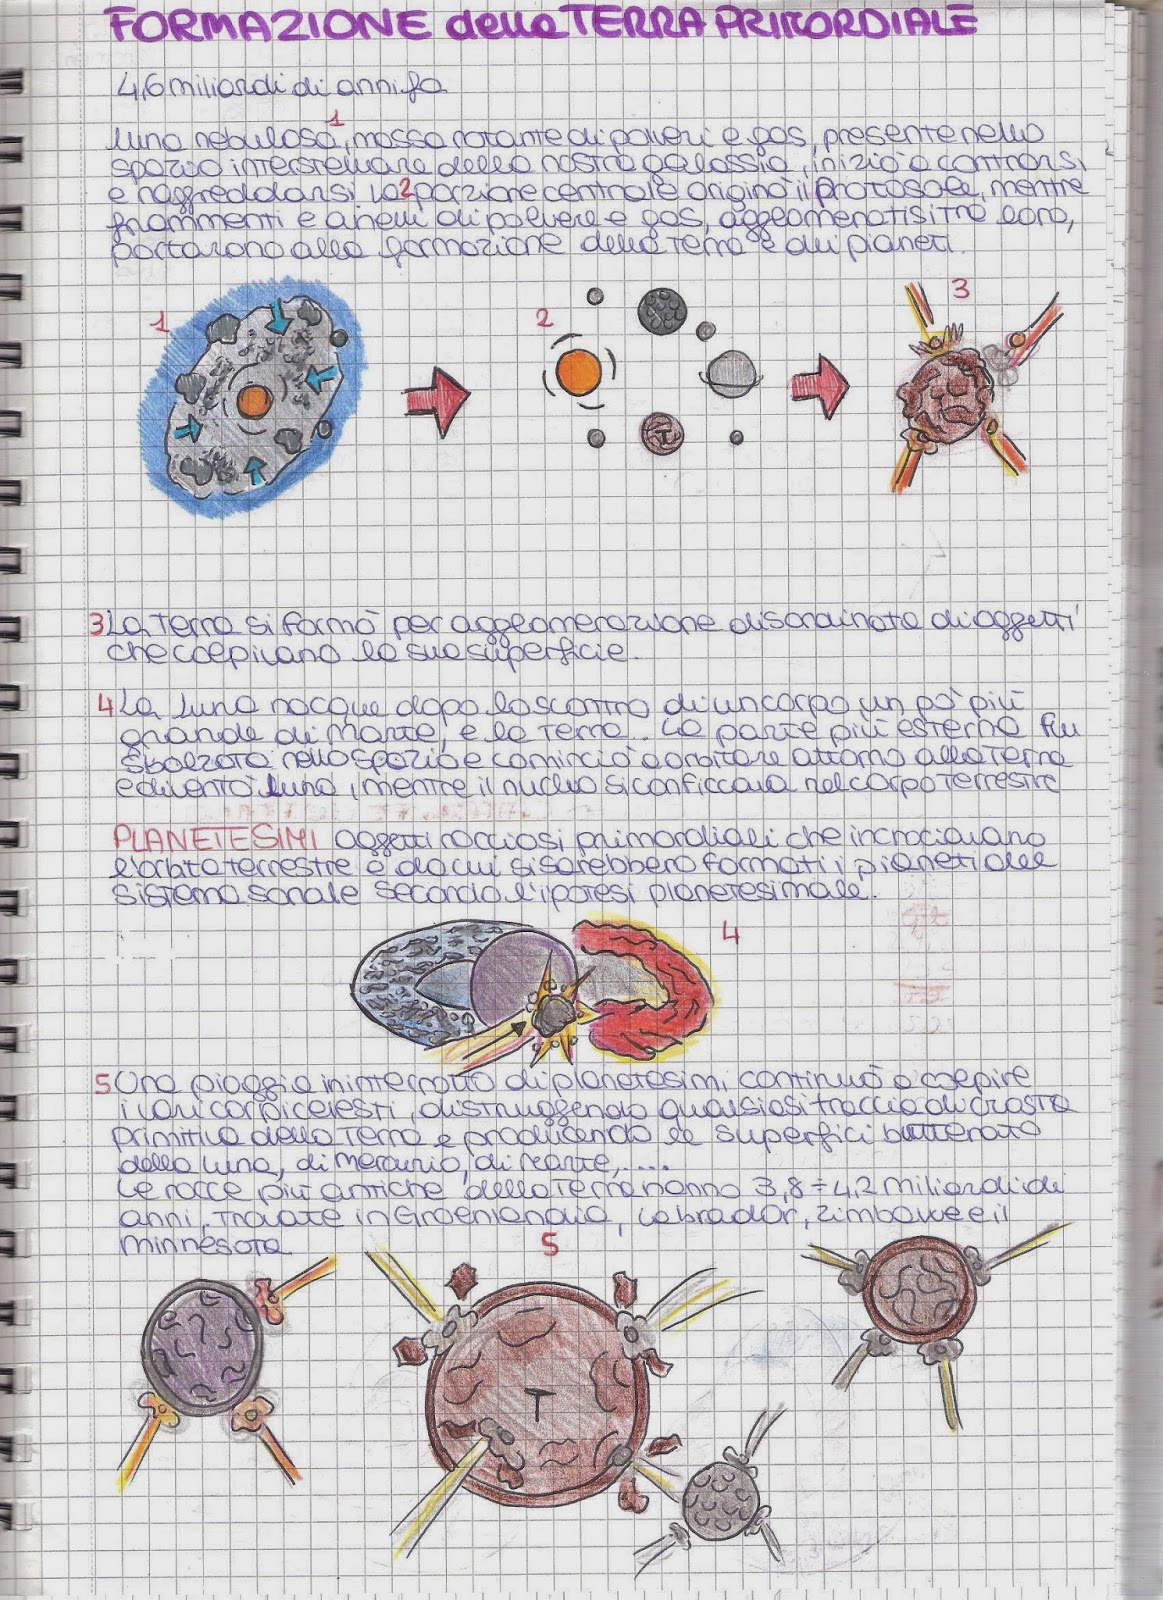 FORMAZIONE della TERRA PRIMORDIALE
4,6 miliardi di anni fa
1
Una nebulosa, massa rotante di polveri e gas, presente nello
spazio interstellare della nostra galassia, iniziò a contrarsi
e raffreddarsi. La 2 porzione centrale originò il protosole, mentre
frammenti e anelli di polvere e gas, agglomeratisi tra loro,
portarono alla formazione della Terra e dei pianeti.
1
2
3
T
3 La Terra si formò per agglomerazione disordinata di oggetti
che colpivano la sua superficie.
4 La Luna nacque dopo lo scontro di un corpo un po' più
grande di Marte, e la Terra. La parte più esterna fu
sbalzata nello spazio e cominciò a orbitare attorno alla Terra
e diventò Luna, mentre il nucleo si conficcava nel corpo terrestre
PLANETESIMI oggetti rocciosi primordiali che incrociavano
l'orbita terrestre e da cui si sarebbero formati i pianeti del
sistema sonale secondo l'ipotesi planetesimale.
4
5 Una pioggia ininterrotta di planetesimi continuò a colpire
i vari corpi celesti, distruggendo qualsiasi traccia di crosta
primitiva della Terra e producendo le superfici butterate
della Luna, di Mercurio, di Marte, ....
Le rocce più antiche della Terra hanno 3,8 ÷ 4,2 miliardi di
anni, trovate in Groenlandia, Labrador, Zimbawe e il
Minnesota
5
T